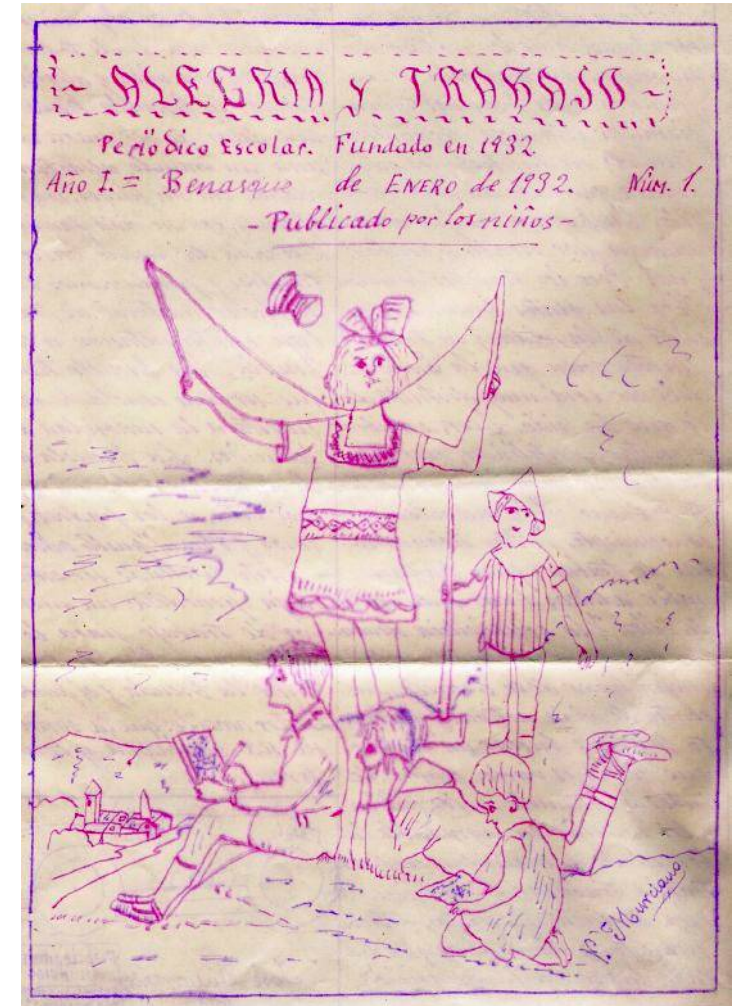 - ALEGRIA y TRABAJO -
Periódico Escolar. Fundado en 1932
Año I. = Benasque de ENERO de 1932. Núm. 1.
- Publicado por los niños -
Murciano